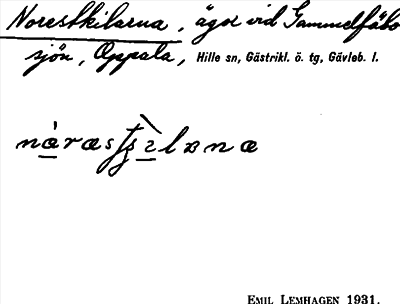 Norestkilarna, ägor vid Gammelfäbo
sjön, Oppala, Hille sn, Gästrikl. ö. tg, Gävleb. l.
EMIL LEMHAGEN 1931.